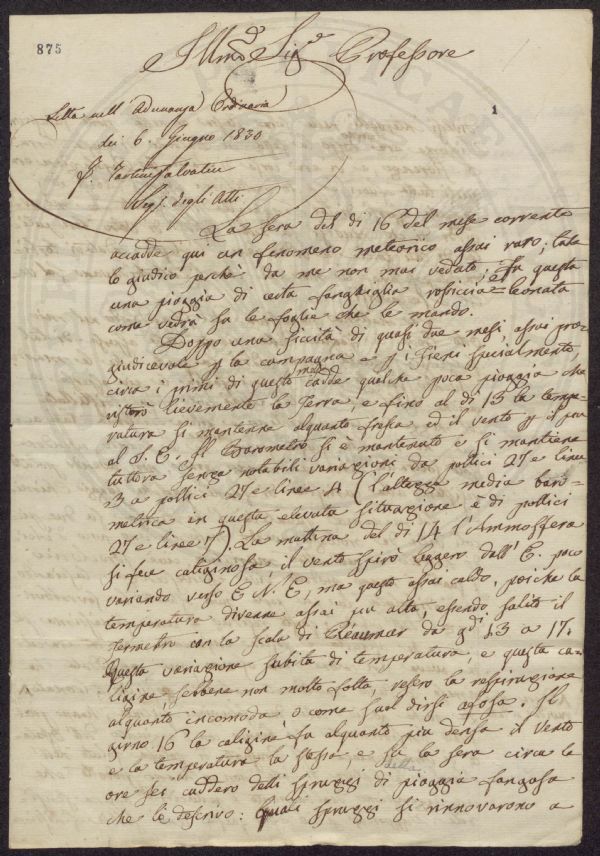 875
Illmo Sigre Professore
1
Letta nell' Adunanza Ordinaria
dei 6. Giugno 1830
F. Tartini Salvatici
Seg. degli Atti
La sera del dì 16 del mese corrente
accadde qui un fenomeno meteorico assai raro; tale
lo giudico perchè da me non mai veduto; fu questa
una pioggia di certa fanghiglia rossiccia e leonata
come vedrà su le foglie che le mando.
Doppo una siccità di quasi due mesi, assai pre-
giudicevole p la campagna e p i Fieni specialmente,
circa i primi di questo mese cadde qualche poca pioggia che
ristorò lievemente la Terra, e fino al dì 13 la tempe-
ratura si mantenne alquanto fresca ed il vento p il più
al S. E. Il Barometro si è mantenuto e si mantiene
tuttora senza notabili variazioni da pollici 27 e linee
3 a pollici 27 e linee 4 (l'altezza media baro-
metrica in questa elevata situazione è di pollici
27 e linee 7). La mattina del dì 14 l'Ammosfera
si fece caliginosa, il vento spirò leggero dall' E. poco
variando verso E. N. E, ma questo assai caldo, poichè la
temperatura divenne assai più alta, essendo salito il
Termetro con la scala di Réaumur da gdi 13 a 17.
Questa variazione subita di temperatura, e questa ca-
ligine, sebbene non molto folta, resero la respirazione
alquanto incomoda o come suol dirsi afosa. Il
giorno 16 la caligine fu alquanto più densa il vento
e la temperatura la stessa, e su la sera circa le
ore sei caddero delli spruzzi di pioggia fangosa
della
che le descrivo: quali spruzzi si rinnovarono a